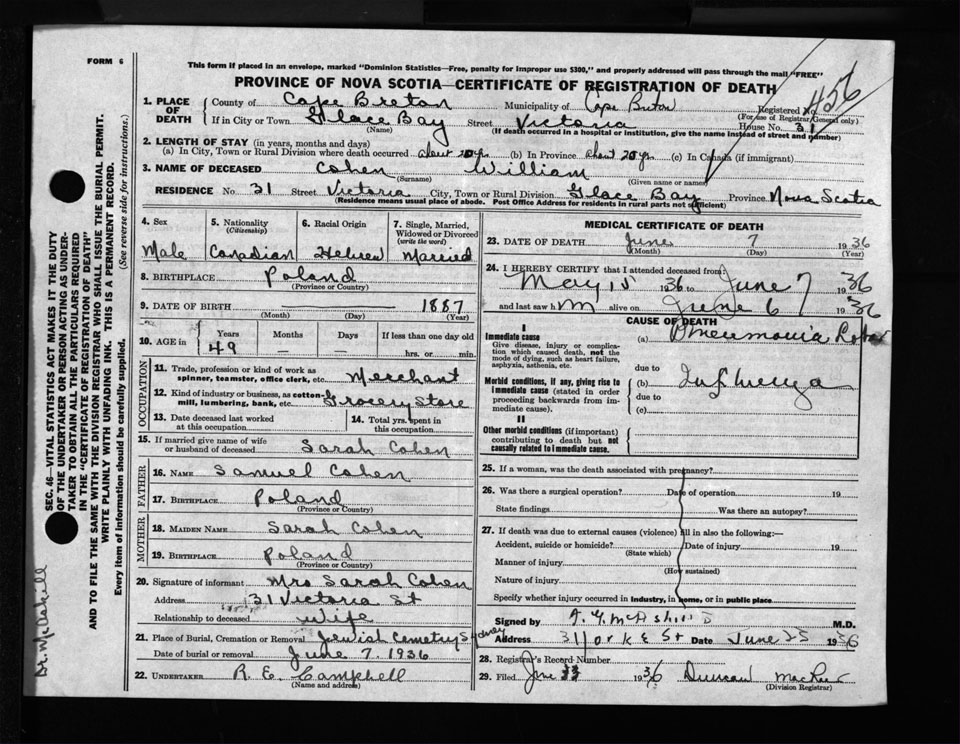 FORM 6
This form if placed in an envelope, marked "Dominion Statistics—Free, penalty for improper use $300," and properly addressed will pass through the mail "FREE"
PROVINCE OF NOVA SCOTIA—CERTIFICATE OF REGISTRATION OF DEATH
1. PLACE OF DEATH
County of Cape Breton Municipality of Cape Breton Registered No. 456
(For use of Registrar General only)
If in City or Town Glace Bay Street Victoria House No. 31
(Name) (If death occurred in a hospital or institution, give the name instead of street and number)
2. LENGTH OF STAY (in years, months and days)
(a) In City, Town or Rural Division where death occurred about 20 yrs (b) In Province about 20 yrs (c) In Canada (if immigrant)
3. NAME OF DECEASED Cohen William
(Surname) (Given name or names)
RESIDENCE No. 31 Street Victoria City, Town or Rural Division Glace Bay Province Nova Scotia
(Residence means usual place of abode. Post Office Address for residents in rural parts not sufficient)
4. Sex Male
5. Nationality (Citizenship) Canadian
6. Racial Origin Hebrew
7. Single, Married, Widowed or Divorced (write the word) Married
8. BIRTHPLACE Poland
(Province or Country)
9. DATE OF BIRTH 1887
(Month) (Day) (Year)
10. AGE in Years Months Days If less than one day old
49 — — hrs. or min.
OCCUPATION
11. Trade, profession or kind of work as spinner, teamster, office clerk, etc. Merchant
12. Kind of industry or business, as cotton-mill, lumbering, bank, etc. Grocery Store
13. Date deceased last worked at this occupation
14. Total yrs. spent in this occupation
15. If married give name of wife or husband of deceased Sarah Cohen
FATHER
16. NAME Samuel Cohen
17. BIRTHPLACE Poland
(Province or Country)
MOTHER
18. MAIDEN NAME Sarah Cohen
19. BIRTHPLACE Poland
(Province or Country)
20. Signature of informant Mrs Sarah Cohen
Address 31 Victoria St
Relationship to deceased Wife
21. Place of Burial, Cremation or Removal Jewish Cemetry Sydney
Date of burial or removal June 7. 1936
22. UNDERTAKER R. E. Campbell
(Name and address)
MEDICAL CERTIFICATE OF DEATH
23. DATE OF DEATH June 7 1936
(Month) (Day) (Year)
24. I HEREBY CERTIFY that I attended deceased from:
May 15 1936 to June 7 1936
and last saw h m alive on June 6 1936
CAUSE OF DEATH
I
Immediate cause
Give disease, injury or complication which caused death, not the mode of dying, such as heart failure, asphyxia, asthenia, etc.
(a) Pneumonia Lobar
due to
Morbid conditions, if any, giving rise to immediate cause (stated in order proceeding backwards from immediate cause).
(b) Influenza
due to
(c)
II
Other morbid conditions (if important) contributing to death but not causally related to immediate cause.
25. If a woman, was the death associated with pregnancy?
26. Was there a surgical operation? Date of operation 19
State findings Was there an autopsy?
27. If death was due to external causes (violence) fill in also the following:—
Accident, suicide or homicide? Date of injury 19
(State which)
Manner of injury
(How sustained)
Nature of injury
Specify whether injury occurred in industry, in home, or in public place
Signed by M.D.
Address Date June 25 1936
28. Registrar's Record Number
29. Filed June 1936 Duncan
(Division Registrar)
SEC. 46—VITAL STATISTICS ACT MAKES IT THE DUTY
OF THE UNDERTAKER OR PERSON ACTING AS UNDER-
TAKER TO OBTAIN ALL THE PARTICULARS REQUIRED
IN THE "CERTIFICATE OF REGISTRATION OF DEATH"
AND TO FILE THE SAME WITH THE DIVISION REGISTRAR WHO SHALL ISSUE THE BURIAL PERMIT.
WRITE PLAINLY WITH UNFADING INK. THIS IS A PERMANENT RECORD.
Every item of information should be carefully supplied. (See reverse side for instructions.)